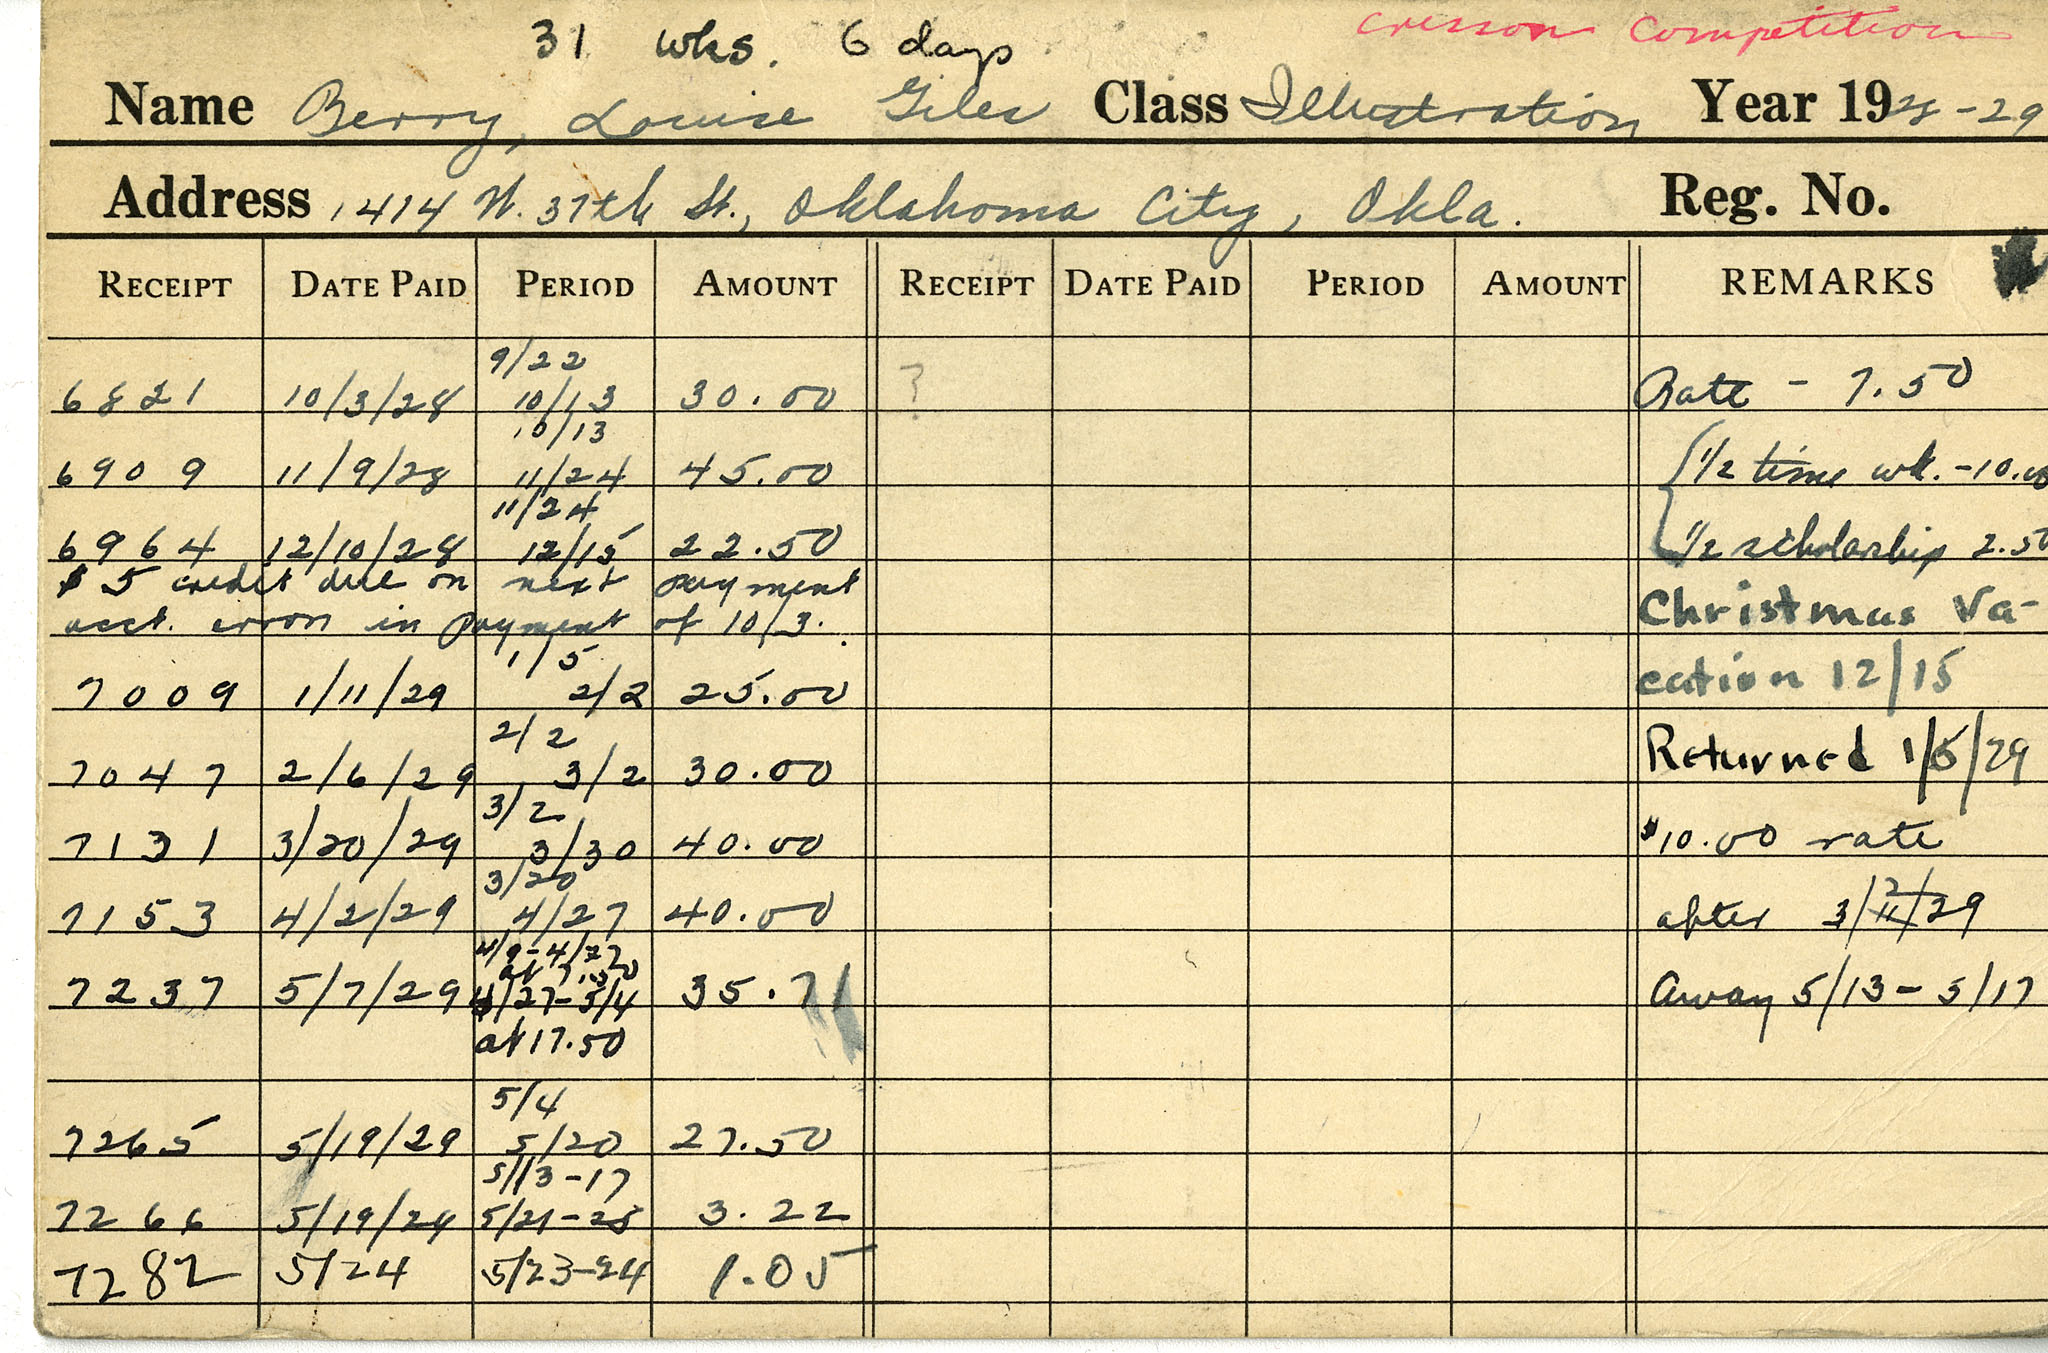 cresson Competition
31 wks. 6 days
Name Berry, Louise Giles Class Illustration Year 1928-29
Address 1414 W. 37th St., Oklahoma City, Okla. Reg. No.
RECEIPT DATE PAID PERIOD AMOUNT RECEIPT DATE PAID PERIOD AMOUNT REMARKS
9/22
6821 10/3/28 10/13 30.00 ? Rate - 7.50
10/13
6909 11/9/28 11/24 45.00 1/2 time wk. -10.00
11/24
6964 12/10/28 12/15 22.50 1/2 scholarship 2.50
$5 credit due on next payment
acct. error in payment of 10/3. Christmas Va-
1/5
7009 1/11/29 2/2 25.00 cation 12/15
2/2
7047 2/6/29 3/2 30.00 Returned 1/5/29
3/2
7131 3/20/29 3/30 40.00 $10.00 rate
3/20
7153 4/2/29 4/27 40.00 after 3/12/29
4/9-4/27
at 7.50
7237 5/7/29 4/27-5/4 35.71 Away 5/13-5/17
at 17.50
5/4
7265 5/19/29 5/20 27.50
5/13-17
7266 5/19/29 5/21-25 3.22
7282 5/24 5/23-24 1.05